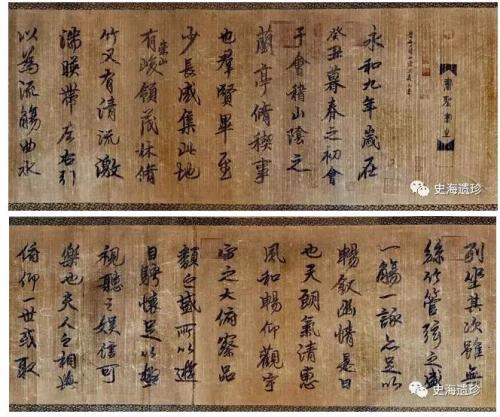 永和九年歲在
癸丑暮春之初會
于會稽山陰之
蘭亭脩稧事
也羣賢畢至
少長咸集此地
有崇山峻領茂林脩
竹又有清流激
湍暎帶左右引
以為流觴曲水
史海遗珍
列坐其次雖無
絲竹管弦之盛
一觴一詠亦足以
暢敘幽情是日
也天朗氣清惠
風和暢仰觀宇
宙之大俯察品
類之盛所以遊
目騁懷足以極
視聽之娛信可
樂也夫人之相與
俯仰一世或取
史海遗珍